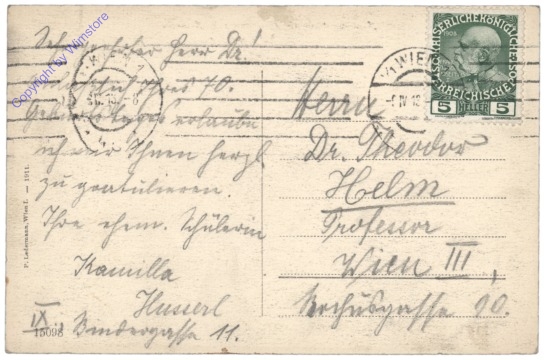 Sehr geehrter Herr Dr!
Anläßlich Ihres 70.
Geburtstages erlaube
ich mir Ihnen herzl.
zu gratulieren.
Ihre ehem. Schülerin
Kamilla
Husserl
IX. Bindergasse 11.
15098
P. Ledermann, Wien I. — 1911.
WIEN
KAISERLICHEKÖNIGLICHE
ÖSTERREICHISCHE
5 HELLER 5
Herrn
Dr. Theodor
Helm
Professor
Wien III,
Rochusgasse 10.
Copyright by Wimstore